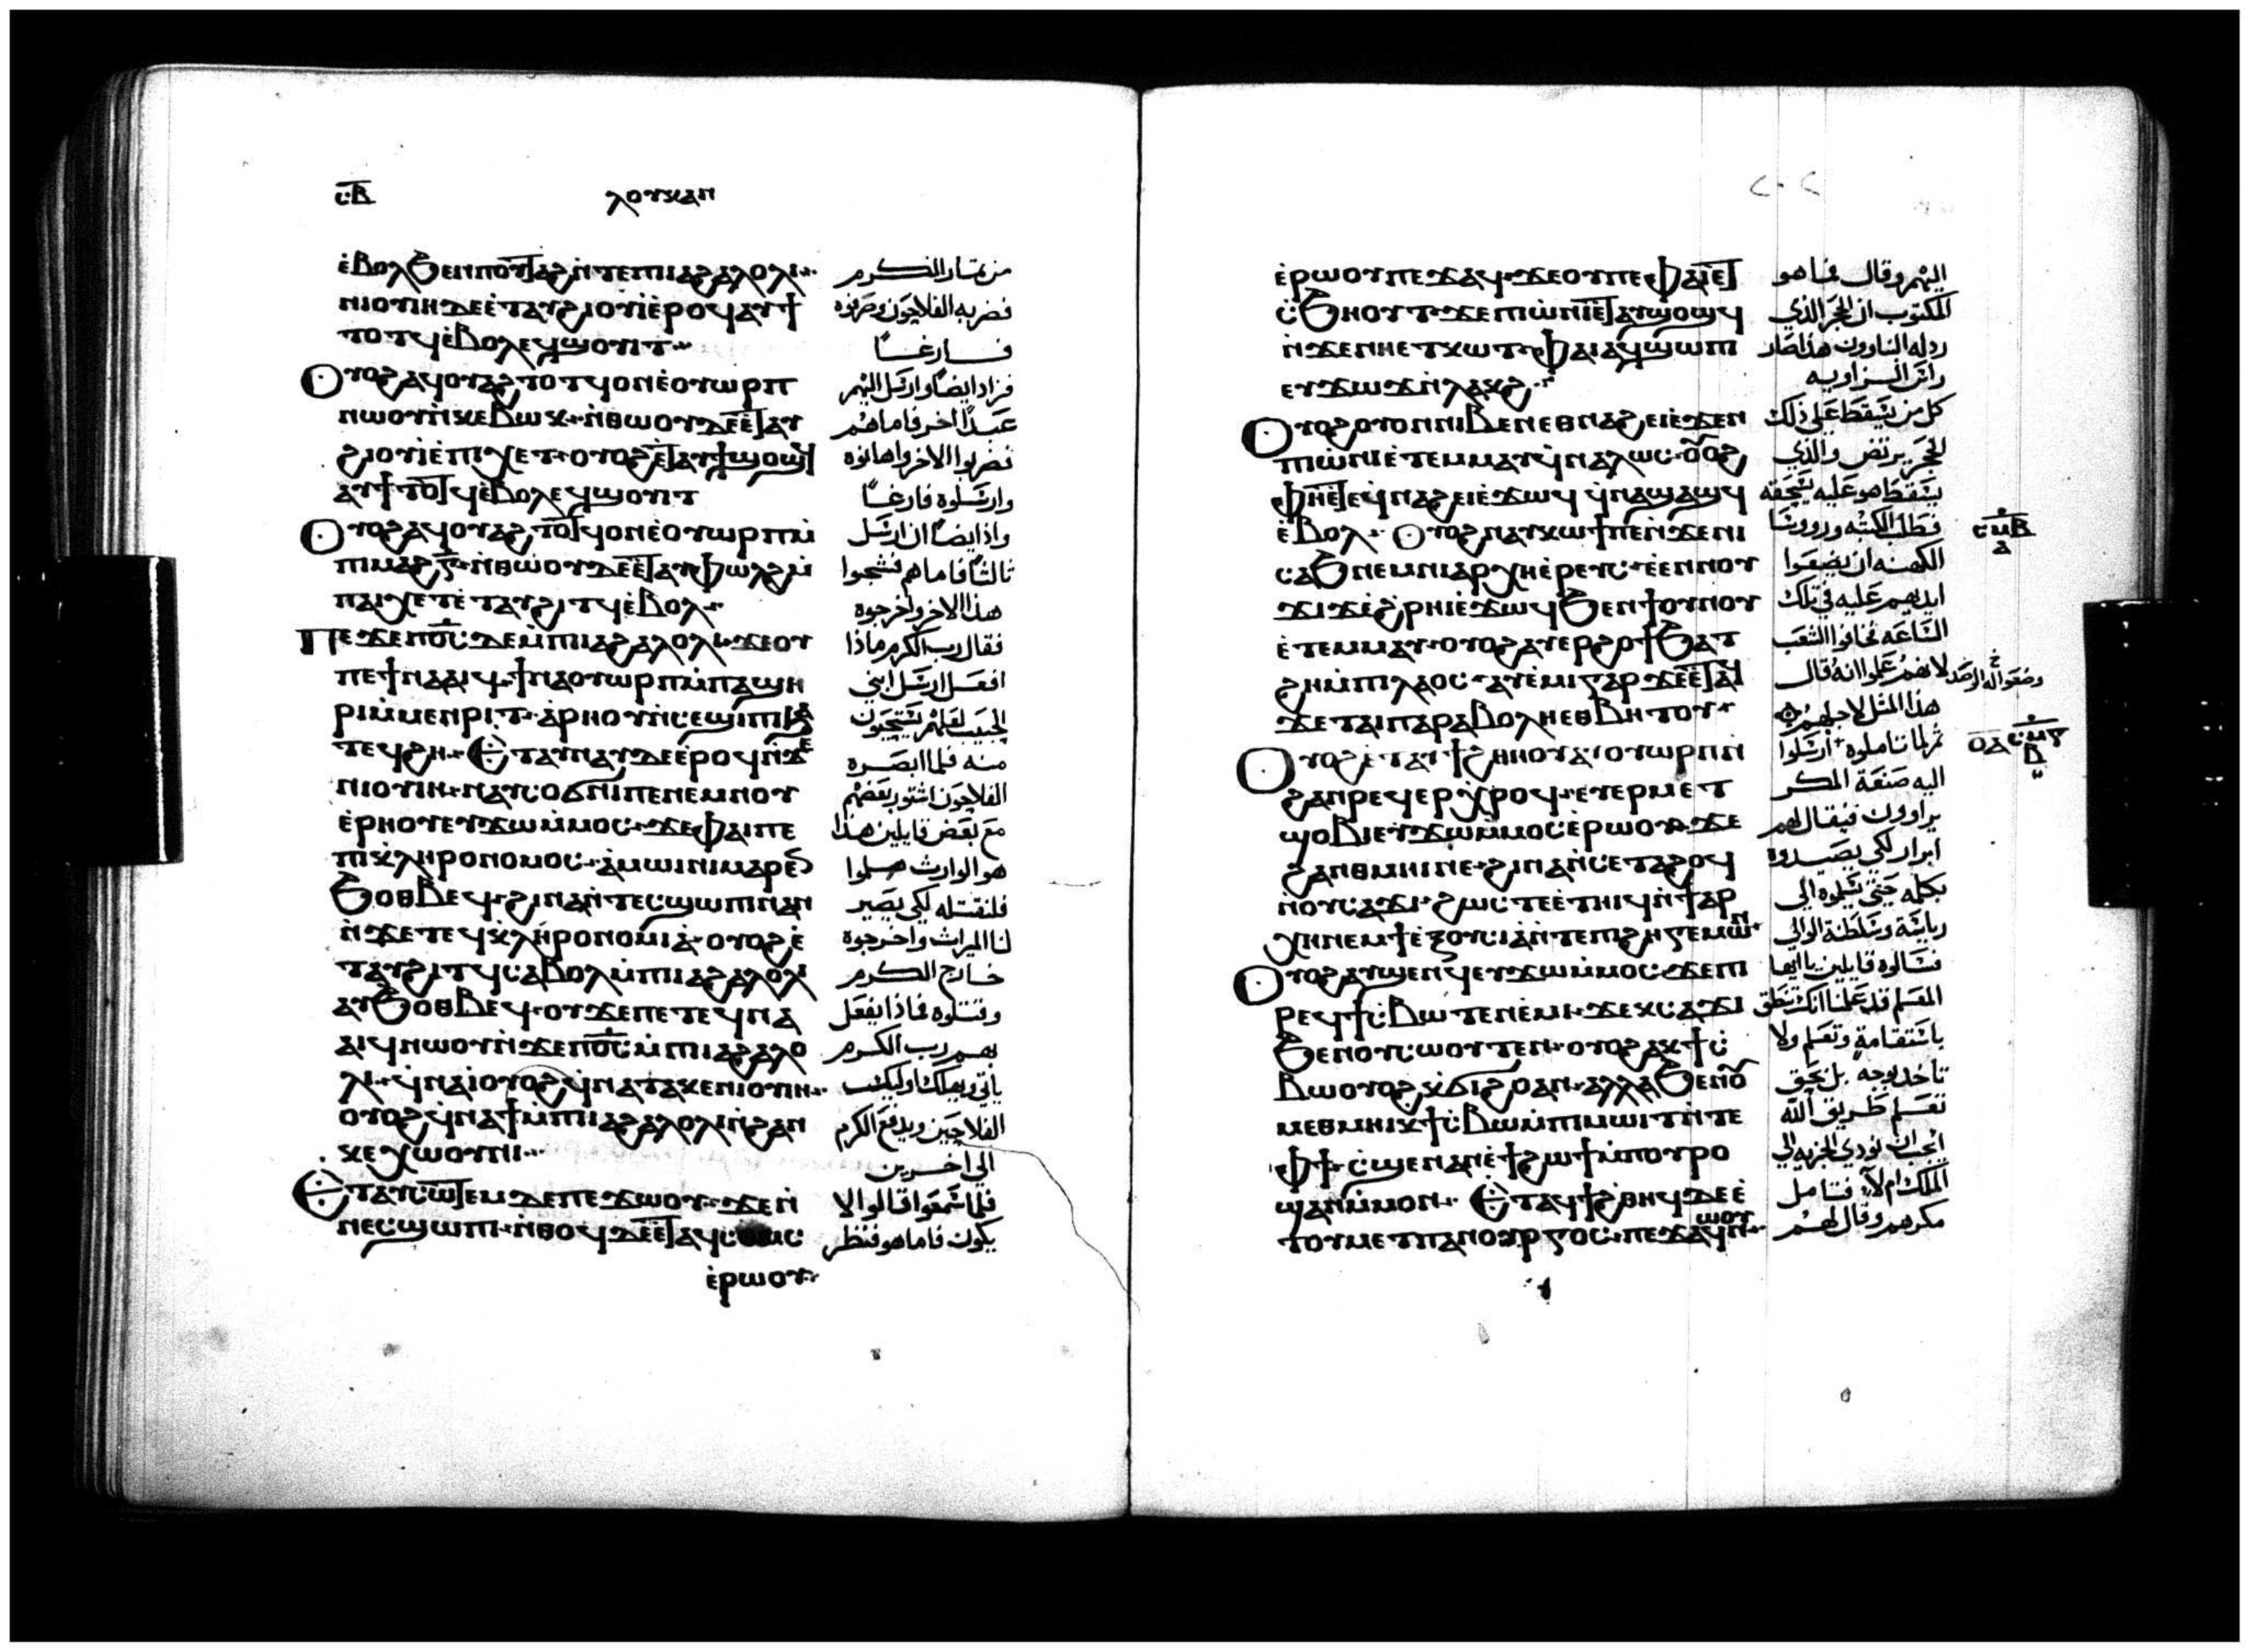 ⲥⲃ
ⲗⲟⲩⲕⲁⲛ
ⲉ̀ⲃⲟⲗϧⲉⲛⲡⲟⲩⲧⲁϩⲛ̀ⲧⲉⲡⲓⲁϩⲁⲗⲟⲗⲓ
ⲛⲓⲟⲩⲓⲏⲇⲉⲉ̀ⲧⲁⲩϩⲓⲟⲩⲓⲉ̀ⲣⲟϥⲁⲩϯ
ⲧⲟⲧϥⲉ̀ⲃⲟⲗⲉϥϣⲟⲩⲓⲧ
ⲟⲩⲟϩⲁϥⲟⲩⲁϩⲧⲟⲧϥⲟⲛⲉ̀ⲟⲩⲱⲣⲡ
ⲛⲱⲟⲩⲛ̀ⲕⲉⲃⲱⲕ ⲛ̀ⲑⲱⲟⲩⲇⲉⲉ̀ⲧⲁⲩ
ϩⲓⲟⲩⲓⲉ̀ⲡⲓⲭⲉⲧ ⲟⲩⲟϩⲉ̀ⲧⲁⲩϯϣⲟϣϥ
ⲁⲩϯⲧⲟⲧϥⲉ̀ⲃⲟⲗⲉϥϣⲟⲩⲓⲧ
ⲟⲩⲟϩⲁϥⲟⲩⲁϩⲧⲟⲧϥⲟⲛⲉ̀ⲟⲩⲱⲣⲡⲙ̀
ⲡⲓⲙⲁϩⲅ̅ ⲛ̀ⲑⲱⲟⲩⲇⲉⲉ̀ⲧⲁⲩⲫⲱⲗϩⲙ̀
ⲡⲁⲓⲭⲉⲧⲉ̀ⲧⲁⲩϩⲓⲧϥⲉ̀ⲃⲟⲗ
ⲡⲉϫⲉⲡⲟ̅ⲥ̅ⲇⲉⲙ̀ⲡⲓⲁϩⲁⲗⲟⲗⲓ ϫⲉⲟⲩ
ⲡⲉϯⲛⲁⲁⲓϥ ϯⲛⲁⲟⲩⲱⲣⲡⲙ̀ⲡⲁϣⲏ
ⲣⲓⲙ̀ⲙⲉⲛⲣⲓⲧ ⲁⲣⲏⲟⲩⲛ̀ⲥⲉϣⲓⲡⲓϧⲁ
ⲧⲉϥϩⲏ ⲉ̀ⲧⲁⲩⲛⲁⲩⲇⲉⲉ̀ⲣⲟϥⲛ̀ϫⲉ
ⲛⲓⲟⲩⲓⲏ ⲛⲁⲩⲥⲟϭⲛⲓⲡⲉⲛⲉⲙⲛⲟⲩ
ⲉ̀ⲣⲏⲟⲩⲉⲩϫⲱⲙ̀ⲙⲟⲥ ϫⲉⲫⲁⲓⲡⲉ
ⲡⲓⲕ̀ⲗⲏⲣⲟⲛⲟⲙⲟⲥ ⲁ̀ⲙⲱⲓⲛⲓⲙⲁⲣⲉⲛ
ϧⲟⲑⲃⲉϥ ϩⲓⲛⲁⲛ̀ⲧⲉⲥϣⲱⲡⲓⲛⲁⲛ
ⲛ̀ϫⲉⲧⲉϥⲕ̀ⲗⲏⲣⲟⲛⲟⲙⲓⲁ̀ ⲟⲩⲟϩⲉ̀
ⲧⲁⲩϩⲓⲧϥⲥⲁⲃⲟⲗⲙ̀ⲡⲓⲁϩⲁⲗⲟⲗⲓ
ⲁⲩϧⲟⲑⲃⲉϥ ⲟⲩϫⲉⲡⲉⲧⲉϥⲛⲁ
ⲁⲓϥⲛⲱⲟⲩⲛ̀ϫⲉⲡⲟ̅ⲥ̅ⲙ̀ⲡⲓⲁϩⲁⲗⲟ
ⲗⲓ ϥ̀ⲛⲁⲓⲟⲩⲟϩϥ̀ⲛⲁⲧⲁⲕⲉⲛⲓⲟⲩⲓⲏ
ⲟⲩⲟϩϥ̀ⲛⲁϯⲙ̀ⲡⲓⲁϩⲁⲗⲟⲗⲓⲛ̀ϩⲁⲛ
ⲕⲉⲭⲱⲟⲩⲛⲓ
ⲉ̀ⲧⲁⲩⲥⲱⲧⲉⲙⲇⲉⲡⲉϫⲱⲟⲩ ϫⲉⲛ̀
ⲛⲉⲥϣⲱⲡⲓ ⲛ̀ⲑⲟϥⲇⲉⲉ̀ⲧⲁϥⲥⲟⲙⲥ
ⲉ̀ⲣⲱⲟⲩ
من ثمار الكرم
فضربه الفلاحون وصرفوه
فارغًا
فزاد ايضًا وارسل اليهم
عبدًا اخر فاما هم
فضربوا الاخر واهانوه
وارسلوه فارغًا
وزاد ايضًا ان ارسل
ثالثًا فاما هم فشجوا
هذا الاخر واخرجوه
فقال رب الكرم ماذا
افعل ارسل ابني
الحبيب لعلهم يستحيون
منه فلما ابصره
الفلاحون اشتور بعضهم
مع بعض قايلين هذا
هو الوارث هلموا
فلنقتله لكي يصير
لنا الميراث واخرجوه
خارج الكرم
وقتلوه فماذا يفعل
بهم رب الكرم
ياتي ويهلك اوليك
الفلاحين ويدفع الكرم
الي اخرين
فلما سمعوا قالوا لا
يكون فاما هو فنظر
٢٠٢
ⲉ̀ⲣⲱⲟⲩⲡⲉϫⲁϥ ϫⲉⲟⲩⲡⲉⲫⲁⲓⲉⲧ
ⲥ̀ϧⲏⲟⲩⲧ ϫⲉⲡⲓⲱ̀ⲛⲓⲉ̀ⲧⲁⲩϣⲟϣϥ
ⲛ̀ϫⲉⲛⲏⲉⲧⲕⲱⲧ ⲫⲁⲓⲁϥϣⲱⲡⲓ
ⲉⲩϫⲱϫⲛ̀ⲗⲁⲕϩ
ⲟⲩⲟϩⲟⲩⲟⲛⲛⲓⲃⲉⲛⲉⲑⲛⲁϩⲉⲓⲉ̀ϫⲉⲛ
ⲡⲓⲱ̀ⲛⲓⲉ̀ⲧⲉⲙⲙⲁⲩϥ̀ⲛⲁⲗⲱⲥ ⲟⲩⲟϩ
ⲫⲏⲉ̀ⲧⲉϥ̀ⲛⲁϩⲉⲓⲉ̀ϫⲱϥ ϥ̀ⲛⲁϣⲁϣϥ
ⲉ̀ⲃⲟⲗ ⲟⲩⲟϩⲛⲁⲩⲕⲱϯⲡⲉⲛ̀ϫⲉⲛⲓ
ⲥⲁϧⲛⲉⲙⲛⲓⲁⲣⲭⲏⲉ̀ⲣⲉⲩⲥ ⲉ̀ⲉⲛⲛⲟⲩ
ϫⲓϫⲉ̀ϩ̀ⲣⲏⲓⲉ̀ϫⲱϥϧⲉⲛϯⲟⲩⲛⲟⲩ
ⲉ̀ⲧⲉⲙⲙⲁⲩ ⲟⲩⲟϩⲁⲩⲉⲣϩⲟϯϧⲁⲧ
ϩⲏⲙ̀ⲡⲓⲗⲁⲟⲥ ⲁⲩⲉ̀ⲙⲓⲅⲁⲣϫⲉⲉ̀ⲧⲁϥ
ϫⲉⲧⲁⲓⲡⲁⲣⲁⲃⲟⲗⲏⲉⲑⲃⲏⲧⲟⲩ
ⲟⲩⲟϩⲉ̀ⲧⲁⲩϯϩ̀ⲑⲏⲟⲩⲁⲩⲟⲩⲱⲣⲡⲛ̀
ϩⲁⲛⲣⲉϥⲉⲣⲭⲣⲟϥ ⲉⲩⲉⲣⲙⲉⲧ
ϣⲟⲃⲓⲉⲩϫⲱⲙ̀ⲙⲟⲥⲉ̀ⲣⲱⲟⲩ ϫⲉ
ϩⲁⲛⲑⲙⲏⲓⲛⲉ ϩⲓⲛⲁⲛ̀ⲥⲉⲧⲁϩⲟϥ
ⲛ̀ⲟⲩⲥⲁϫⲓ ϩⲱⲥⲧⲉⲉ̀ⲧⲏⲓϥⲛ̀ϯⲁⲣ
ⲭⲏⲛⲉⲙϯⲉ̀ⲝⲟⲩⲥⲓⲁ̀ⲛ̀ⲧⲉⲡⲓϩⲏⲅⲉⲙⲱⲛ
ⲟⲩⲟϩⲁⲩϣⲉⲛϥⲉⲩϫⲱⲙ̀ⲙⲟⲥ ϫⲉⲡⲓ
ⲣⲉϥϯⲥ̀ⲃⲱⲧⲉⲛⲉ̀ⲙⲓ ϫⲉⲕⲥⲁϫⲓ
ϧⲉⲛⲟⲩⲥⲱⲟⲩⲧⲉⲛ ⲟⲩⲟϩⲁⲕϯⲥ̀
ⲃⲱⲟⲩⲟϩⲕ̀ϭⲓϩⲟⲁⲛ ⲁⲗⲗⲁϧⲉⲛⲟⲩ
ⲙⲉⲑⲙⲏⲓⲕϯⲥ̀ⲃⲱⲙ̀ⲡⲓⲙⲱⲓⲧⲛ̀ⲧⲉ
ⲫϯ ⲥ̀ϣⲉⲛⲁⲛⲉ̀ϯϩⲱϯⲙ̀ⲡⲟⲩⲣⲟ
ϣⲁⲛⲙ̀ⲙⲟⲛ ⲉ̀ⲧⲁϥϯϩ̀ⲑⲏϥⲇⲉⲉ̀
ⲧⲟⲩⲙⲉⲧⲡⲁⲛⲟⲩⲣⲅⲟⲥ ⲡⲉϫⲁϥⲛⲱⲟⲩ
اليهم وقال فما هو
المكتوب ان الحجر الذي
رذله البناوون هذا صار
راس الزاويه
كل من يسقط علي ذلك
الحجر يرتض والذي
يسقط هو عليه يسحقه
فطلب الكتبه وروسا
الكهنه ان يضعوا
ايديهم عليه في تلك
الساعه فخافوا الشعب
لانهم علموا انه قال
هذا المثل لاجلهم
ثم لما تاملوه ارسلوا
اليه صنعة المكر
يراوون فيقال لهم
ابرار لكي يصيدوه
بكلمه حتي يسلموه الي
رياسة وسلطنة الوالي
فسالوه قايلين يا ايها
المعلم قد علمنا انك تنطق
باستقامة وتعلم ولا
تاخذ بوجه بل بحق
تعلم طريق الله
ايجب ان نودي الجزيه الي
الملك ام لا فتامل
مكرهم وقال لهم
ⲥⲙⲃ
ⲁ
ⲟⲁ ⲥⲙⲅ
ⲃ